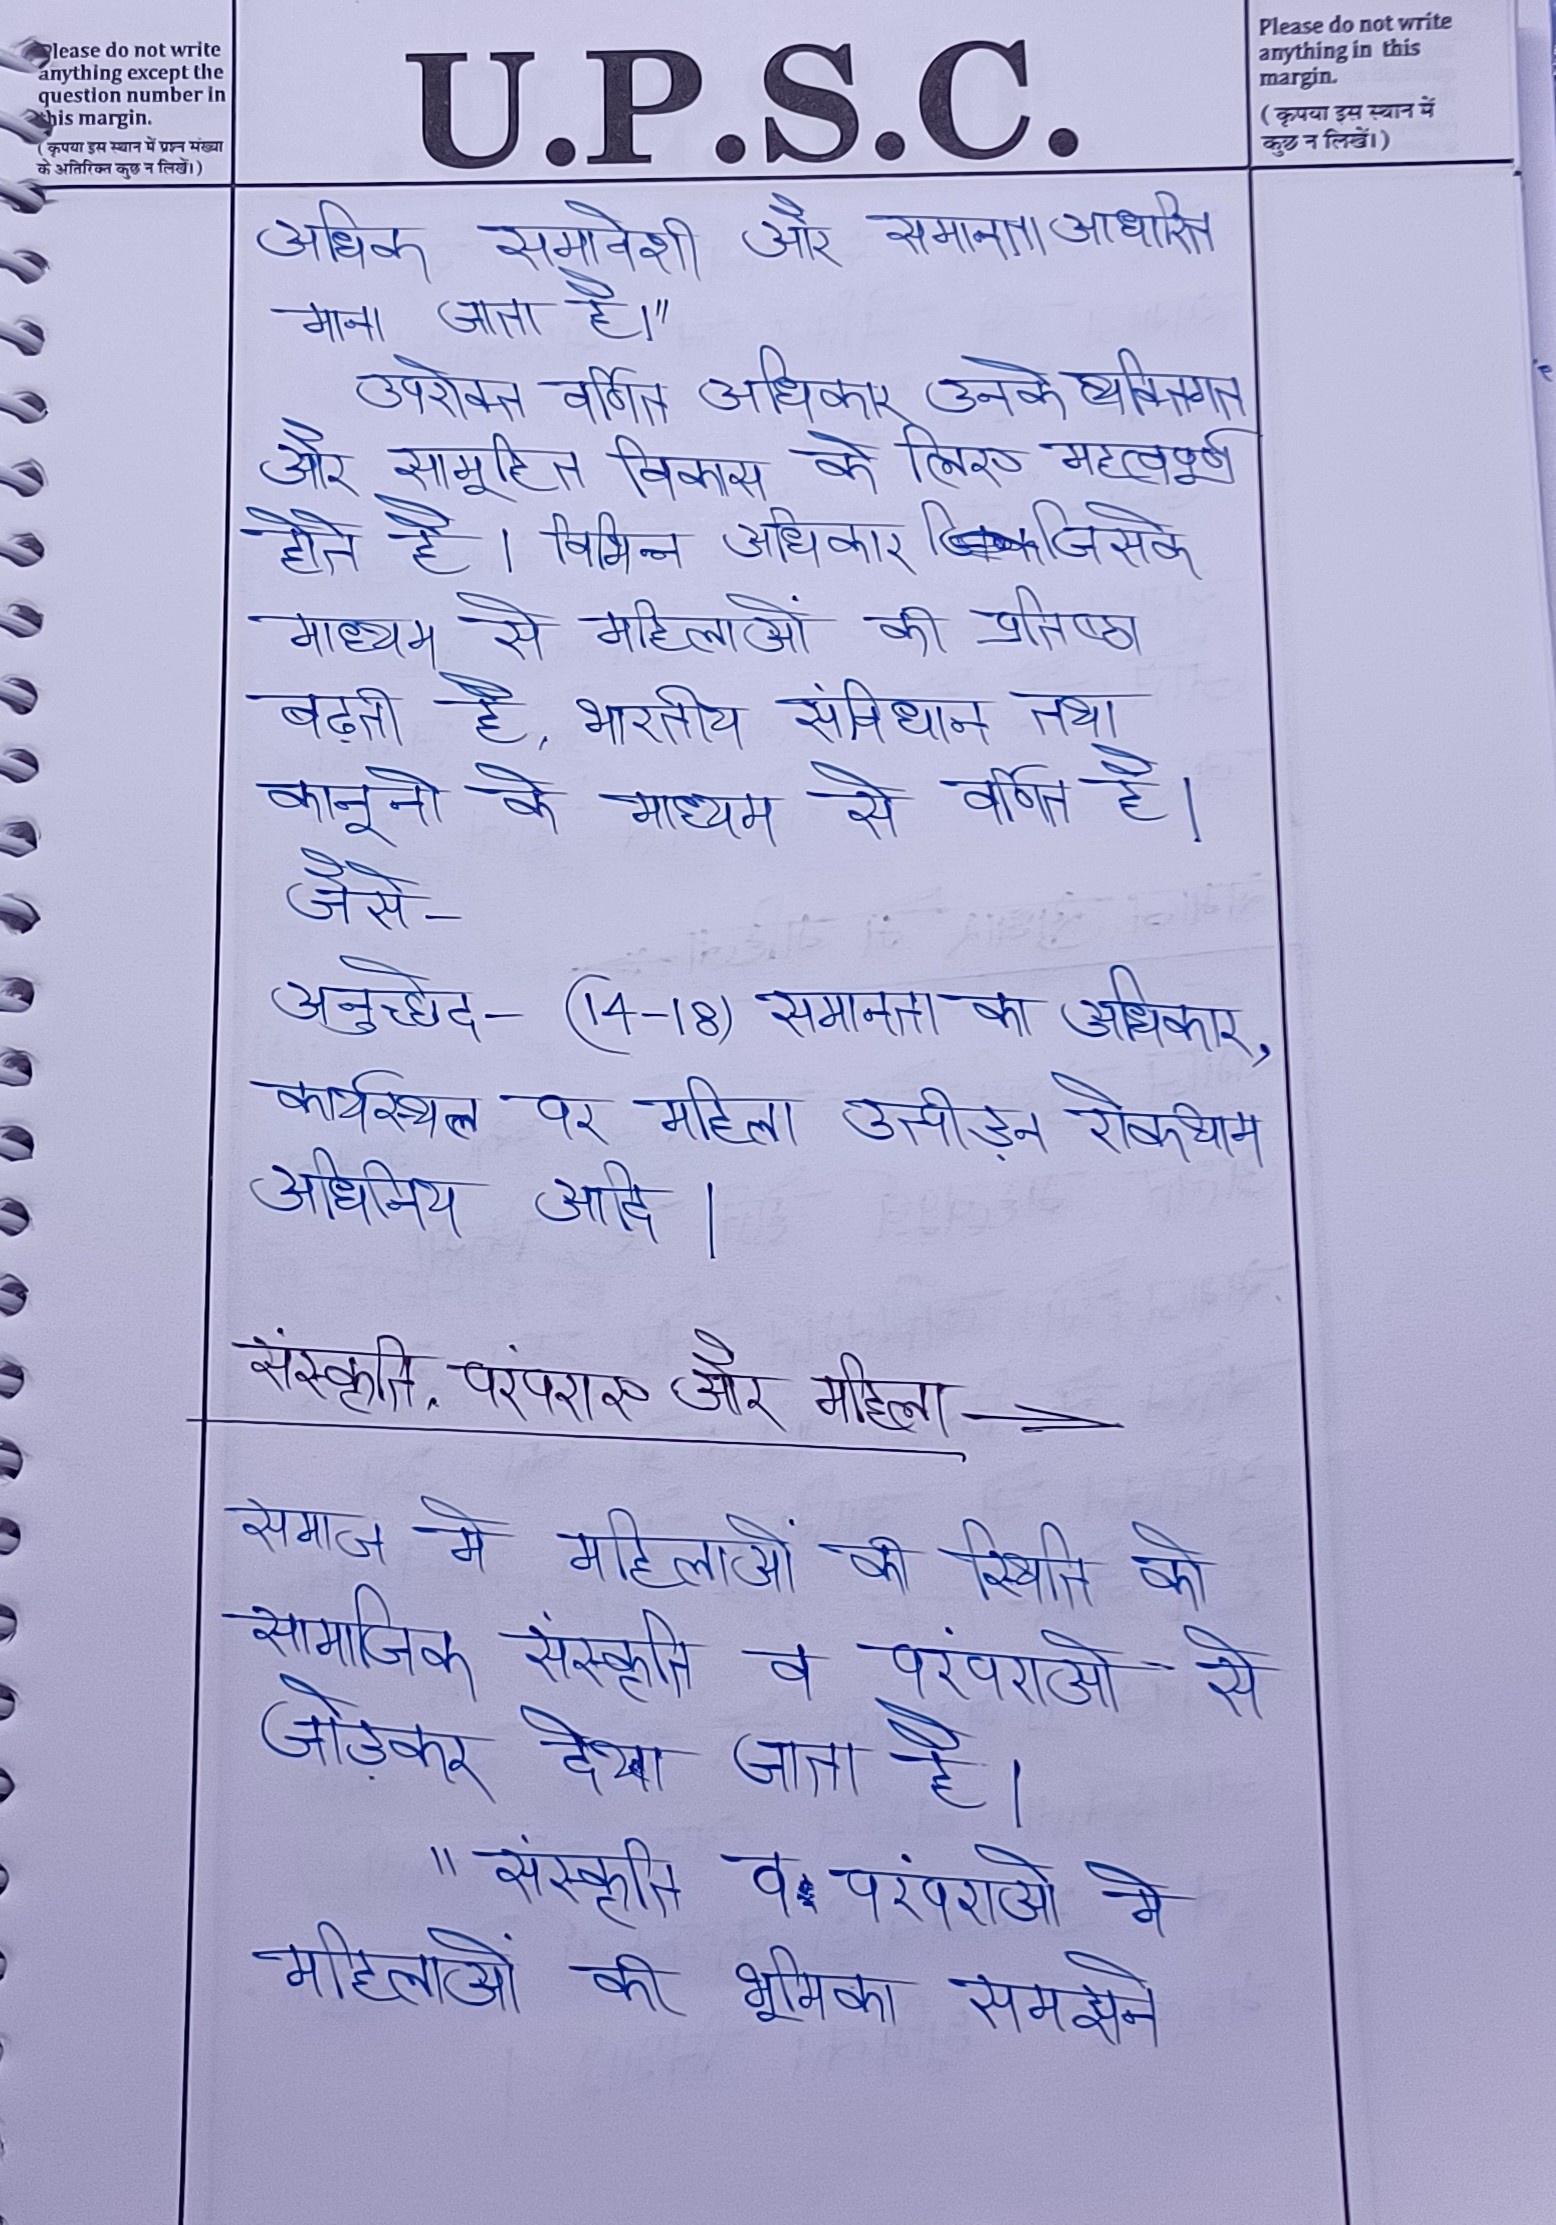 Please do not write
anything except the
question number in
this margin.
(कृपया इस स्थान में प्रश्न संख्या
के अतिरिक्त कुछ न लिखें।)
U.P.S.C.
Please do not write
anything in this
margin.
(कृपया इस स्थान में
कुछ न लिखें।)
अधिक समावेशी और समानता आधारित
माना जाता है।"
उपरोक्त वर्णित अधिकार उनके व्यक्तिगत
और सामूहित विकास के लिए महत्वपूर्ण
होते है । विभिन्न अधिकार जिसके
माध्यम से महिलाओं की प्रतिष्ठा
बढ़ती है, भारतीय संविधान तथा
कानूनो के माध्यम से वर्णित है ।
जैसे-
अनुच्छेद- (14-18) समानता का अधिकार,
कार्यस्थल पर महिला उत्पीड़न रोकथाम
अधिनिय आदि ।
संस्कृति, परंपराए और महिला →
समाज मे महिलाओं की स्थिति को
सामाजिक संस्कृति व परंपराओ से
जोड़कर देखा जाता है ।
"संस्कृति व परंपराओ मे
महिलाओं की भूमिका समझने